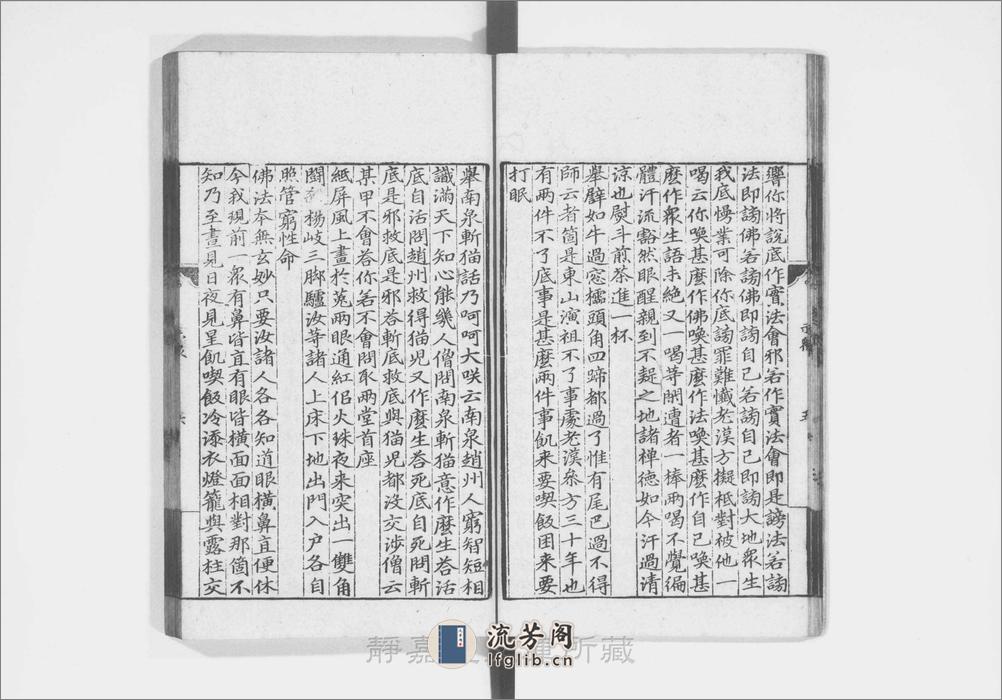 響你將說底作實法會邪若作實法會即是謗法若謗
法即謗佛若謗佛即謗自己若謗自己即謗大地眾生
我底慢業可除你底謗罪難懺老漢方擬袛對被他一
喝云你喚甚麼作佛喚甚麼作法喚甚麼作自己喚甚
麼作眾生語未絕又一喝等閑遭者一棒兩喝不覺徧
體汗流豁然眼醒親到不疑之地諸禪德如今汗過清
涼也熨斗煎茶進一杯
舉譬如牛過窓櫺頭角四蹄都過了惟有尾巴過不得
師云者箇是東山演祖不了事處老漢叅方三十年也
有兩件不了底事是甚麼兩件事飢来要喫飯困来要
打眠
舉南泉斬猫話乃呵呵大咲云南泉趙州人窮智短相
識滿天下知心能幾人僧問南泉斬猫意作麼生荅活
底自活問趙州救得猫児又作麼生荅死底自死問斬
底是邪救底是邪荅斬底救底與猫児都没交涉僧云
某甲不會荅你若不會問取兩堂首座
紙屏風上畫於菟兩眼通紅佀火珠夜来突出一雙角
楊岐三脚驢汝等諸人上床下地出門入户各自
照管窮性命
佛法本無玄妙只要汝諸人各各知道眼橫鼻直便休
今我現前一衆有鼻皆直有眼皆橫面面相對那箇不
知乃至晝見日夜見星飢喫飯冷添衣燈籠與露柱交
靜嘉 所藏
流芳阁
lfglib.cn